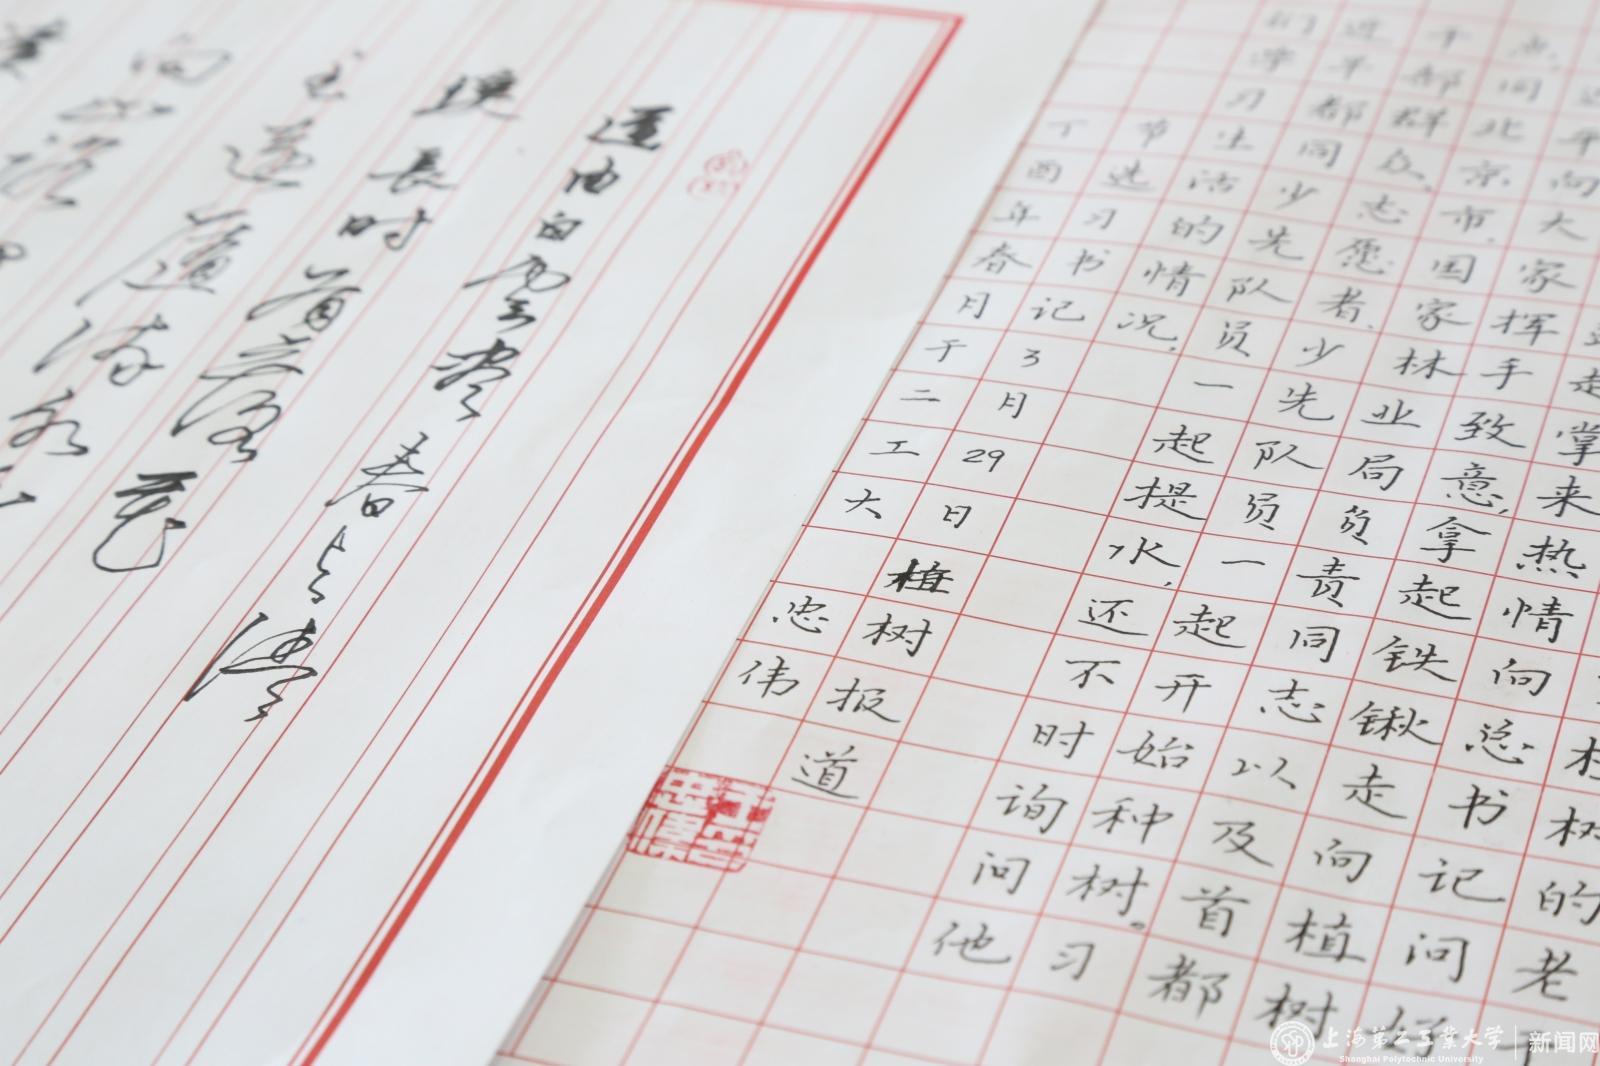 道由白云尽春与清
溪长时有落花
至远随流水
向山路
走掌来热情向总书记问好
平向大家挥手致意,拿起铁锹走向植树
点,同北京市、国家林业局负责同志以及首都
干部群众、志愿者、少先队员一起开始种树。习
近平都同少先队员一起提水,还不时询问他
们学习生活的情况,
节选习书记3月29日植树报道
丁酉年春月于二工大 忠伟
树的老
上海第二工业大学 新闻网
Shanghai Polytechnic University